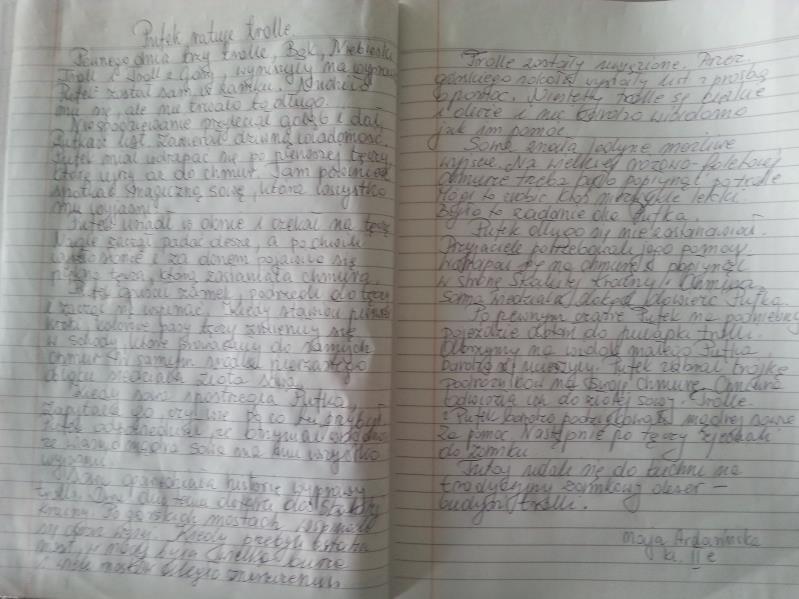 Pufek ratuje trolle.
Pewnego dnia trzy trolle, Bąk, Niebieski
Troll i Troll z Gór, wyruszyły na wyprawę
Pufek został sam w zamku. Nudziło
mu się, ale nie trwało to długo.
Niespodziewanie przyleciał gołąb i dał
Pufkowi list. Zawierał dziwną wiadomość.
Pufek miał wdrapać się po pierwszej tęczy,
która wiedzie aż do chmur. Tam powinien
spotkać magiczną sowę, która wszystko
mu wyjaśni.
Pufek usiadł w oknie i czekał na tęczę.
Nagle zaczął padać deszcz, a po chwili
słońce i za oknem pojawiła się
piękna tęcza, którą zasłaniała chmura.
Pufek opuścił zamek, podszedł do tęczy
i zaczął się wspinać. Kiedy stawiał pierwsze
kroki, kolorowe pasy tęczy zmieniły się
w schody, które prowadziły do samych
chmur. Na samym środku pierzastego
obłoku siedziała złota sowa.
Kiedy sowa spostrzegła Pufka,
zapytała go czy wie po co tu przybył.
Pufek odpowiedział, że otrzymał wiadomość
że właśnie mądra sowa ma mu wszystko
wyjaśnić.
Sowa opowiedziała historię wyprawy
trolli. Dwa dni temu dotarły do Skalnej
krainy. Po górskich mostach wspinały
się coraz wyżej. Kiedy przebyły ostatni
most, w nocy była wielka burza
i wiele mostów uległo zniszczeniu.
Trolle zostały uwięzione. Przez
górskiego sokoła wysłały list z prośbą
o pomoc. Niestety trolle są ciężkie
i duże i nie bardzo wiadomo
jak im pomóc.
Sowa znała jedyne możliwe
wyjście. Na wielkiej różowo-fioletowej
chmurze trzeba było popłynąć po trolle
Mógł to zrobić ktoś niezwykle lekki.
Było to zadanie dla Pufka.
Pufek długo się nie zastanawiał.
Przyjaciele potrzebowali jego pomocy.
Wdrapał się na chmurę i popłynął
w stronę Skalnej Krainy. Chmura
sama wiedziała dokąd dowieźć Pufka.
Po pewnym czasie Pufek na podniebnym
pojeździe dotarł do pułapki trolli.
Olbrzymy na widok małego Pufka,
bardzo się ucieszyły. Pufek zabrał trójkę
podróżników na swoją chmurę. Chmura
odwiozła ich do złotej sowy. Trolle
i Pufek bardzo podziękowali mądrej sowie
za pomoc. Następnie po tęczy zjechali
do zamku.
Tutaj udali się do kuchni na
tradycyjny zamkowy deser –
budyń trolli.
Maja
kl. II e